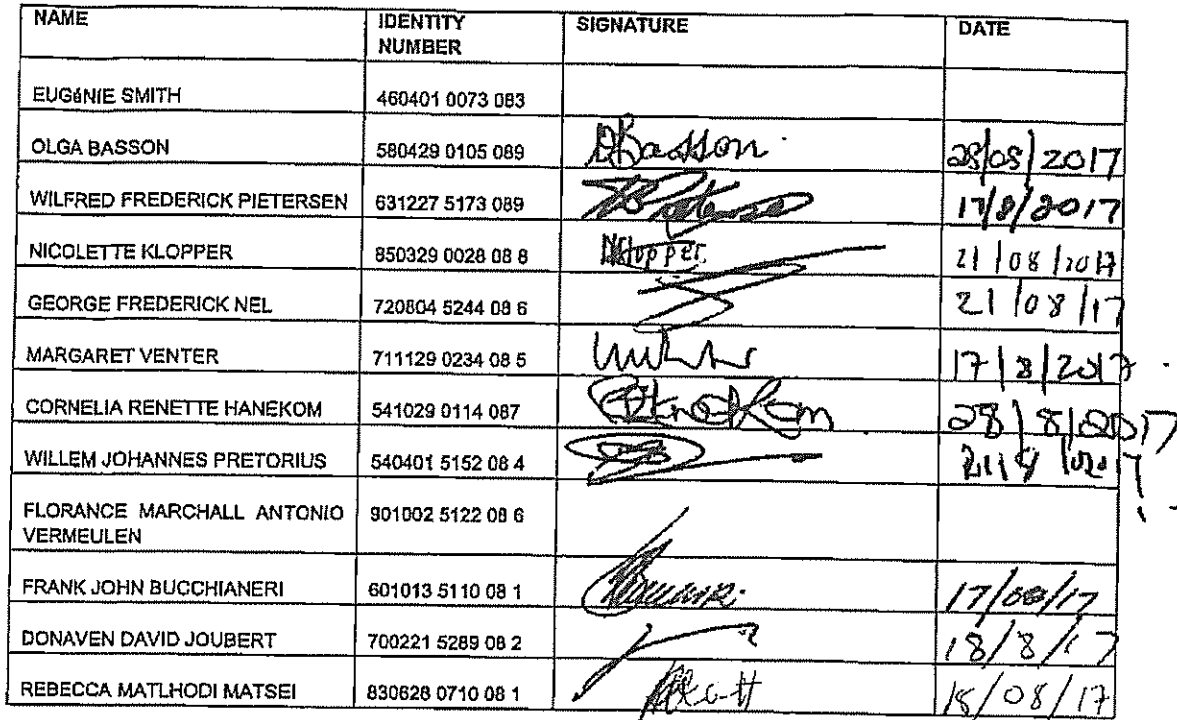 NAME IDENTITY NUMBER SIGNATURE DATE
EUGéNIE SMITH 460401 0073 083
OLGA BASSON 580429 0105 089 OBasson 28/08/2017
WILFRED FREDERICK PIETERSEN 631227 5173 089 17/8/2017
NICOLETTE KLOPPER 850329 0028 08 8 NKlopper 21/08/2017
GEORGE FREDERICK NEL 720804 5244 08 6 21/08/17
MARGARET VENTER 711129 0234 08 5 17/8/2017
CORNELIA RENETTE HANEKOM 541029 0114 087 28/8/2017
WILLEM JOHANNES PRETORIUS 540401 5152 08 4
FLORANCE MARCHALL ANTONIO VERMEULEN 901002 5122 08 6
FRANK JOHN BUCCHIANERI 601013 5110 08 1 17/08/17
DONAVEN DAVID JOUBERT 700221 5289 08 2 18/8/17
REBECCA MATLHODI MATSEI 830628 0710 08 1 18/08/17